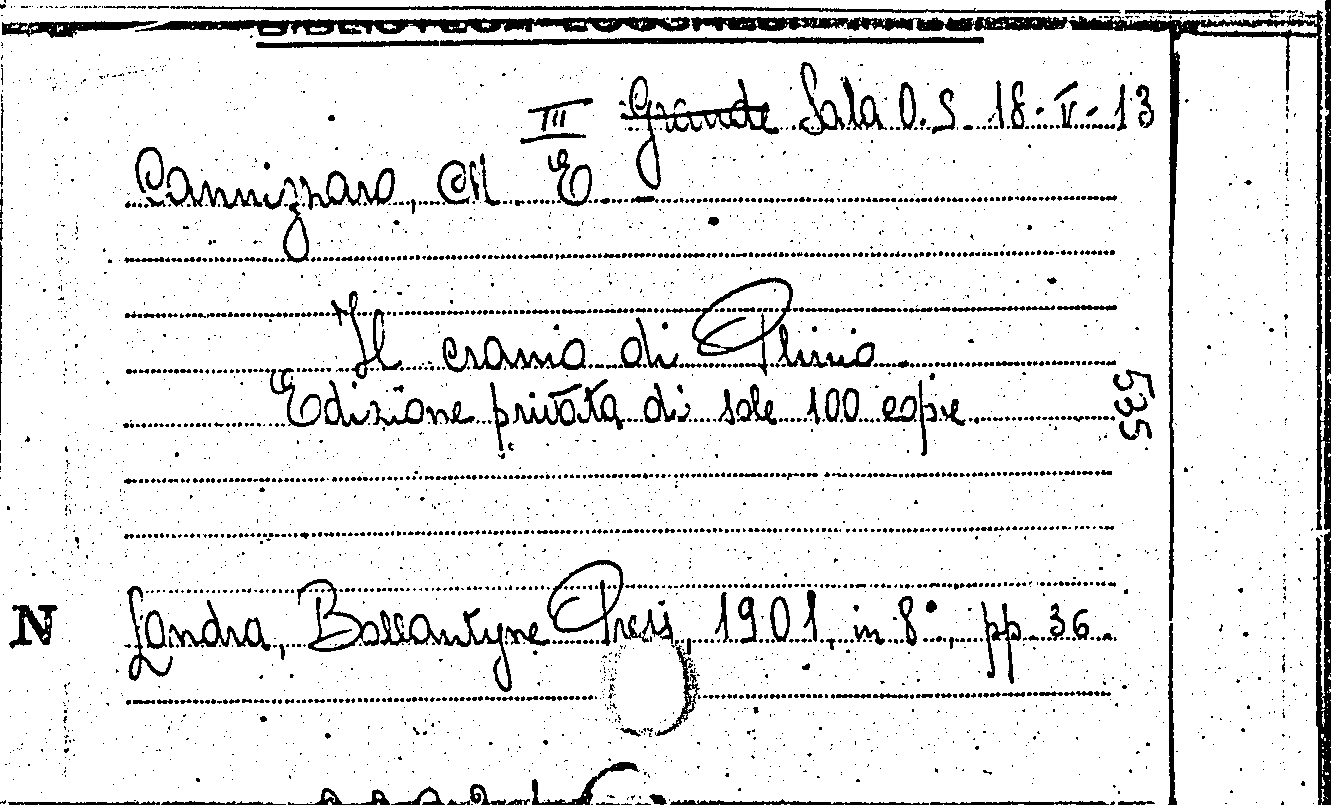 III ~~Grande~~ Sala O. S. 18-V-13
Cannizzaro, M. E.
Il cranio di Plinio.
Edizione privata di sole 100 copie.
535
N Londra, Ballantyne Press, 1901, in 8°, pp. 36.